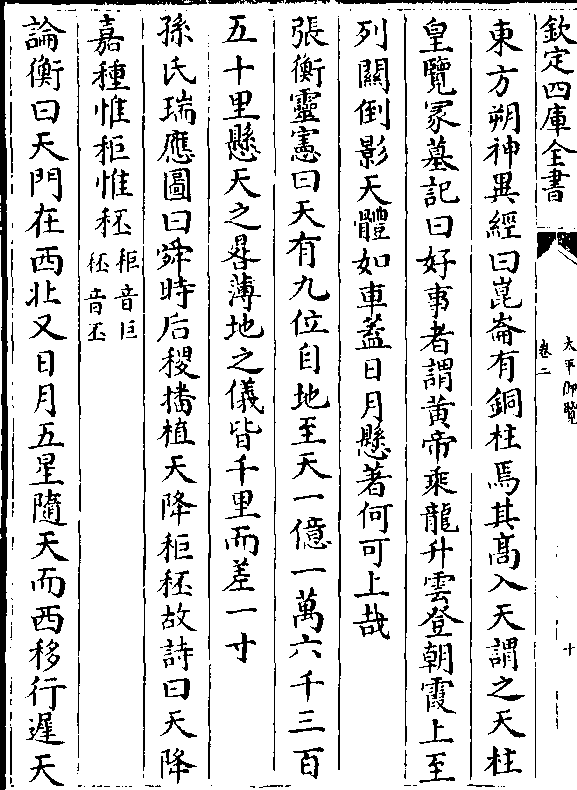 欽定四庫全書
太平御覽
卷二
十
東方朔神異經曰崑崙有銅柱焉其髙入天謂之天柱
皇覽冡墓記曰好事者謂黄帝乘龍升雲登朝霞上至
列闕倒影天體如車葢日月懸著何可上哉
張衡靈憲曰天有九位自地至天一億一萬六千三百
五十里懸天之晷薄地之儀皆千里而差一寸
孫氏瑞應圖曰舜時后稷播植天降秬秠故詩曰天降
嘉種惟秬惟秠秬音巨秠音丕
論衡曰天門在西北又日月五星隨天而西移行遲天